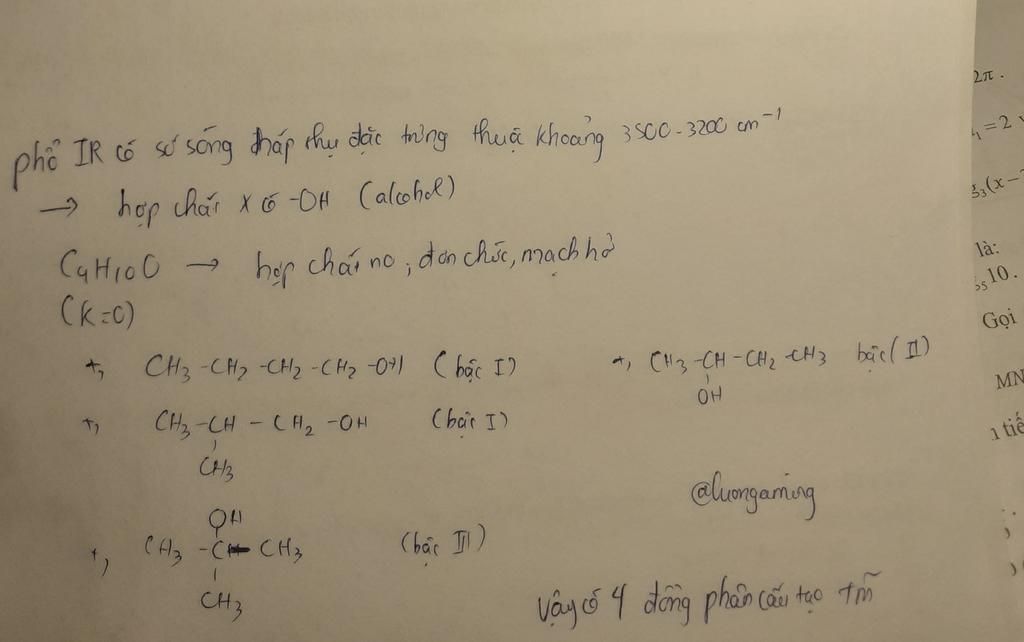 phổ IR có số sóng hấp thụ đặc trưng thuộc khoảng 3500-3200 cm⁻¹
→ hợp chất X có -OH (alcohol)
C₄H₁₀O → hợp chất no, đơn chức, mạch hở
(k=0)
+, CH₃-CH₂-CH₂-CH₂-OH (bậc I)
+, CH₃-CH-CH₂-CH₃ bậc (II)
OH
+, CH₃-CH-CH₂-OH (bậc I)
CH₃
OH
+, CH₃-C-CH₃ (bậc III)
CH₃
@luongaming
Vậy có 4 đồng phân cấu tạo tm̃
2π.
=2
(x-
là:
10.
Gọi
MN
1 tiế